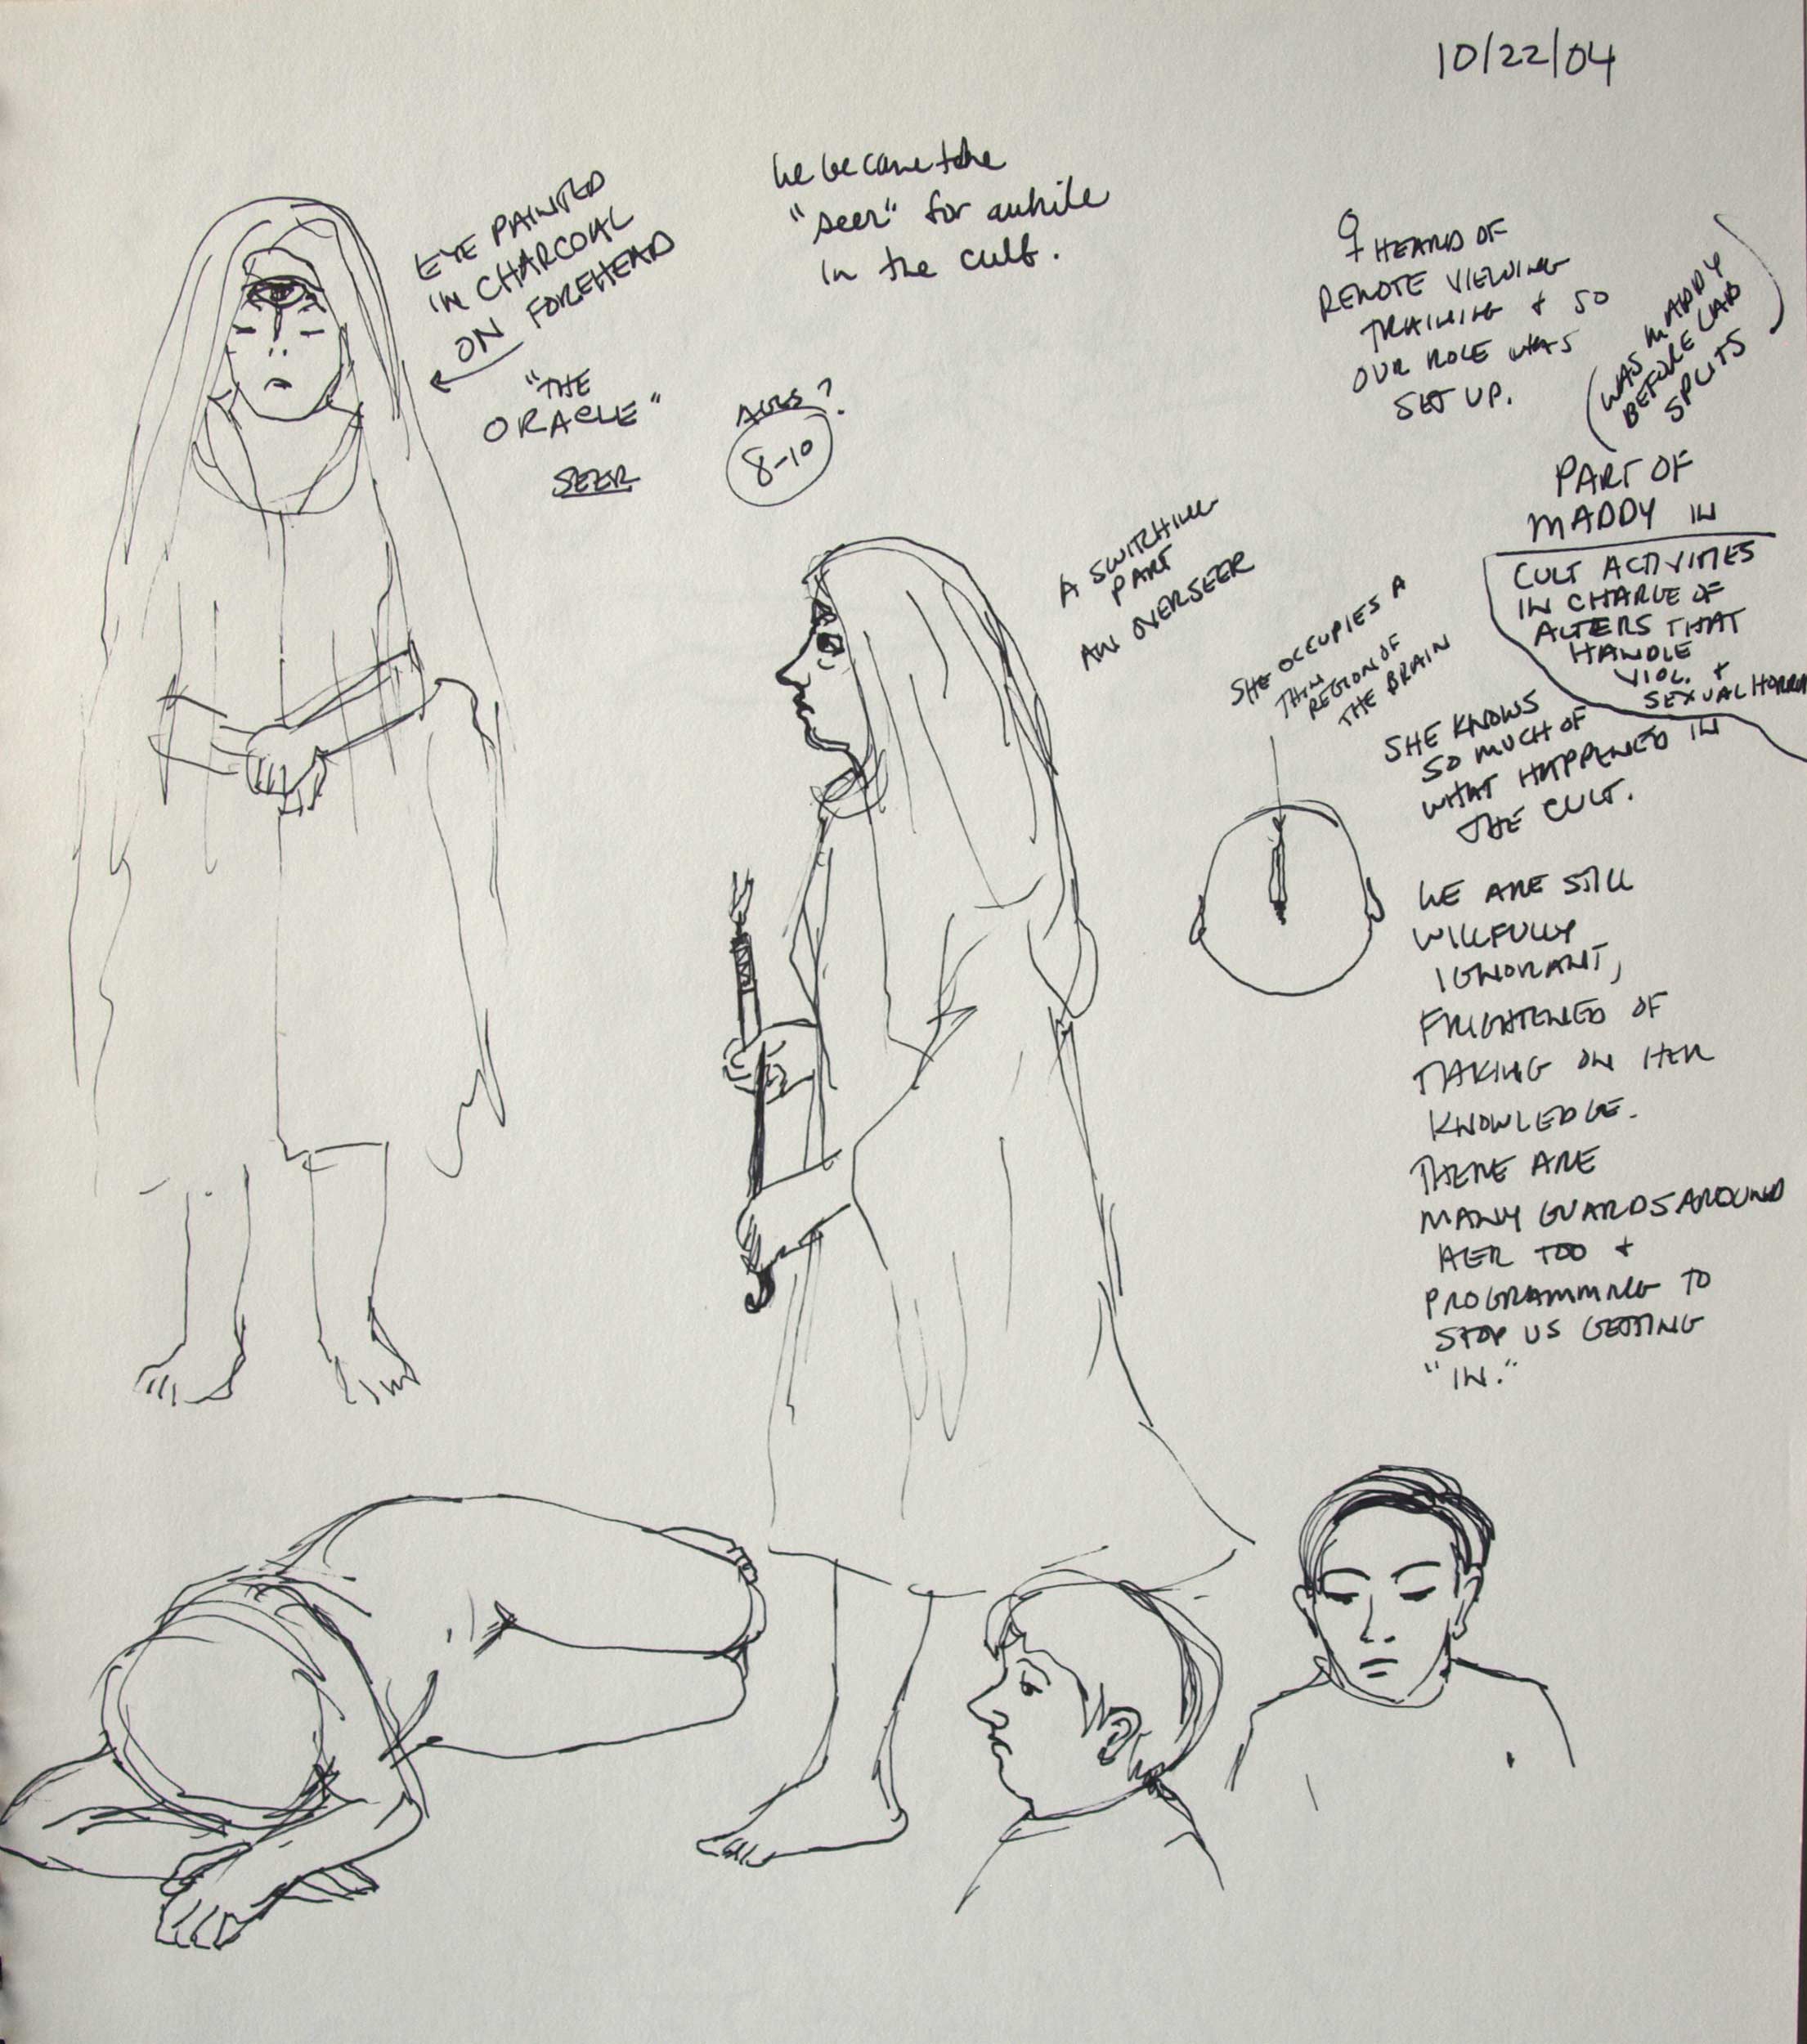 10/22/04
EYE PAINTED
IN CHARCOAL
ON FOREHEAD
"THE
ORACLE"
SEER
we became the
"seer" for awhile
in the cult.
8-10
♀ HEARD OF
REMOTE VIEWING
TRAINING + SO
OUR ROLE WAS
SET UP.
(WAS MADDY
BEFORE LAB
SPLITS)
PART OF
MADDY IN
CULT ACTIVITIES
IN CHARGE OF
ALTERS THAT
HANDLE
VIOL. +
SEXUAL HORROR
IN
A SWITCHING
PART
AN OVERSEER
SHE OCCUPIES A
THIN
REGION OF
THE BRAIN
SHE KNOWS
SO MUCH OF
WHAT HAPPENED
THE CULT.
WE ARE STILL
WILLFULLY
IGNORANT,
FRIGHTENED OF
TAKING ON HER
KNOWLEDGE.
THERE ARE
MANY GUARDS AROUND
HER TOO +
PROGRAMMING TO
STOP US GETTING
"IN."